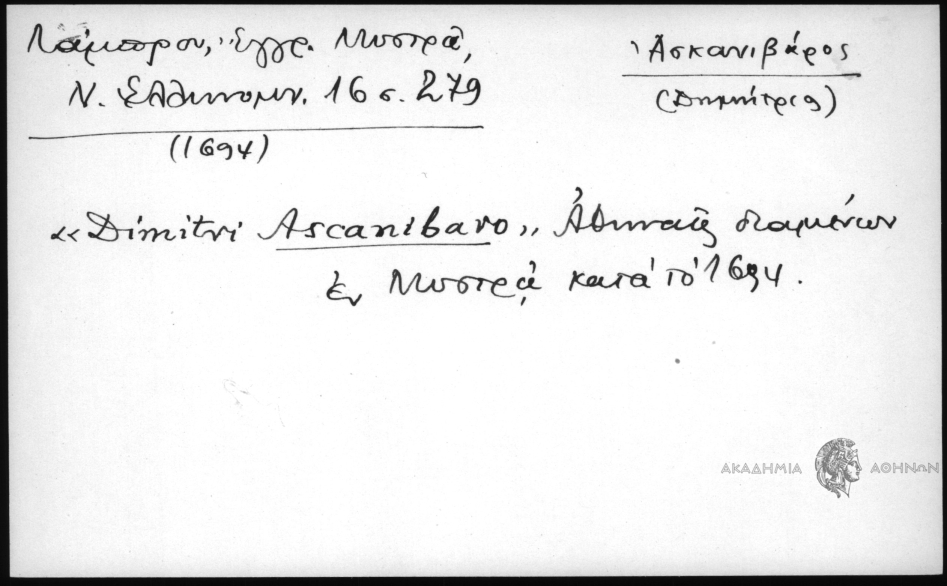 Λάμπρου, Ἔγγρ. Μυστρᾶ,
Ν. Ἑλληνομν. 16 σ. 279
(1694)
Ἀσκανιβάρος
(Δημήτριος)
«Dimitri Ascanibaro» Ἀθηναῖος διαμένων
ἐν Μυστρᾷ κατὰ τὸ 1694.
ΑΚΑΔΗΜΙΑ ΑΘΗΝΩΝ